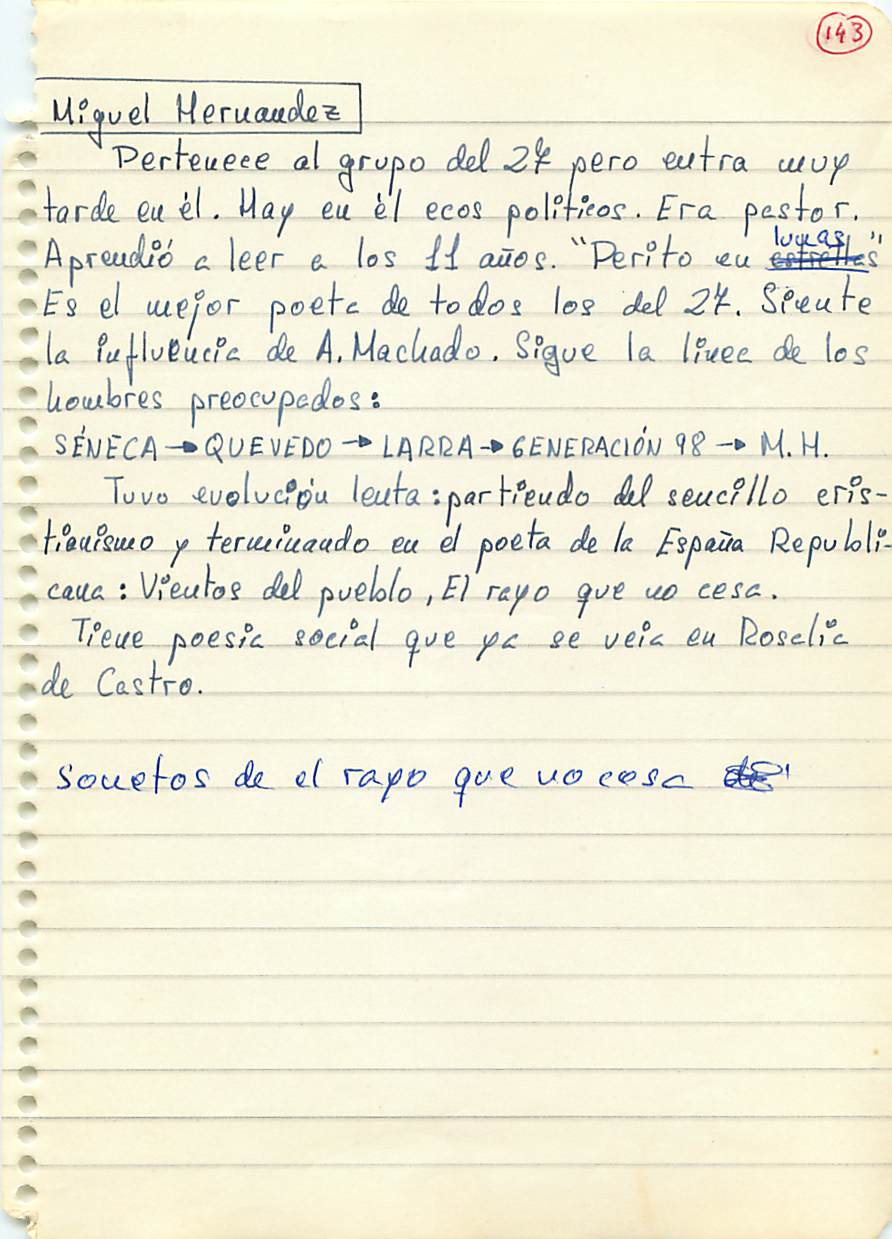 143
Miguel Hernandez
Pertenece al grupo del 27 pero entra muy
tarde en él. Hay en él ecos políticos. Era pastor.
Aprendió a leer a los 11 años. "Perito en lunas"
estrellas
Es el mejor poeta de todos los del 27. Siente
la influencia de A. Machado. Sigue la linea de los
hombres preocupados:
SÉNECA → QUEVEDO → LARRA → GENERACIÓN 98 → M. H.
Tuvo evolución lenta: partiendo del sencillo cris-
tianismo y terminando en el poeta de la España Republi-
cana: Vientos del pueblo, El rayo que no cesa.
Tiene poesia social que ya se veia en Rosalia
de Castro.
Sonetos de el rayo que no cesa